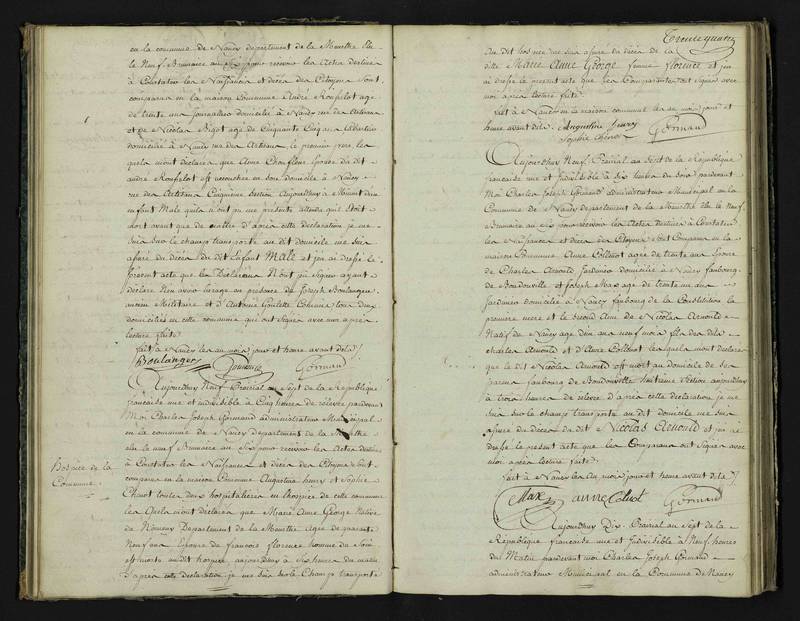 en la commune de Nancy departement de la Meurthe Elu
le Neuf Brumaire an six pour recevoir les Actes destinés
à Constater les Naissances et décès des Citoyens Sont
comparus en la maison Commune André Roufelot age
de trente ans journallier domicilié à Nancy rue des Artisans
et de Nicolas Bigot age de Cinquante Cinq ans
domicilié à Nancy rue des Artisans le premier pere, les
quels mont déclaré que Anne Epouse du dit
andré Roufelot est accouchée en Son domicile à Nancy
rue des Artisans Cinquieme Section Aujourdhuy à Minuit d'un
enfant Male quils n'ont pu me présenter attendu quil Etoit
mort avant que de naitre d'après cette déclaration je me
Suis Sur le champ transporté au dit domicile me Suis
assuré du décès du dit Enfant MALE et j'en ai dressé le
présent acte que les Déclarans N'ont pu Signer ayant
déclaré N'en avoir l'usage en présence de Joseph Boulanger
ancien Militaire et d'Antoine tous deux
domiciliés en cette commune qui ont Signés avec moi après
lecture faite
fait à Nancy les an mois jour et heure avant dits
Boulanger Gormand
Aujourdhuy Neuf Prairial an Sept de la République
française une et indivisible à Cinq heures de relevée pardevant
Moi Charles Joseph Gormand administrateur Municipal
en la commune de Nancy departement de la Meurthe
elu le neuf Brumaire an Six pour recevoir les Actes destinés
à Constater les Naissances et décès des Citoyens Sont
comparus en la maison Commune Augustine henry et Sophie
toutes deux hospitalieres en l'hospice de cette commune
Hospice de la
Commune
les Quelles m'ont déclaré que Marie Anne George Native
de Nomeny Departement de la Meurthe Agée de quarante
Neuf ans Epouse de francois florence homme de
est morte au dit hospice aujourdhuy à Six heures du matin
d'après cette déclaration je me Suis Sur le Champ transporté
Trente quatre
au dit hospice me suis assuré du décès de la
ditte Marie Anne George femme florence et j'en
ai dressé le présent acte que les Comparantes ont Signés avec
moi après lecture faite
fait à Nancy en la maison commune les an mois jour et
heure avant dits Augustine henry Gormand
Sophie
Aujourdhuy Neuf Prairial an Sept de la République
française une et Indivisible à Six heures du Soir pardevant
Moi Charles Joseph Gormand administrateur Municipal en la
Commune de Nancy departement de la Meurthe élu le neuf
Brumaire an Six pour recevoir les Actes destinés à Constater
les Naissances et décès des Citoyens Sont Comparus en la
maison Commune Anne Collinot agée de trente ans Epouse
de Charles Arnould Jardinier domicilié à Nancy faubourg
de Boudonville et Joseph Max age de trente un ans
Jardinier domicilié à Nancy faubourg de la Constitution la
premiere mere et le second Ami de Nicolas Arnould
Natif de Nancy age d'un an neuf mois fils des dits
charles Arnould et d'Anne Collinot lesquels mont déclaré
que le dit Nicolas Arnould est mort au domicile de ses
parens faubourg de Boudonville huitieme Section aujourdhuy
à trois heures de relevé d'après cette déclaration je me
Suis Sur le champ transporté au dit domicile me Suis
assuré du décès du dit Nicolas Arnould et j'en ai
dressé le présent acte que les Comparans ont Signés avec
moi après lecture faite
fait à Nancy les an mois jour et heure avant dits
Max anne Gormand
Aujourdhuy Dix Prairial an Sept de la
République française une et Indivisible à Neuf heures
du Matin pardevant moi Charles Joseph Gormand
administrateur Municipal en la Commune de Nancy